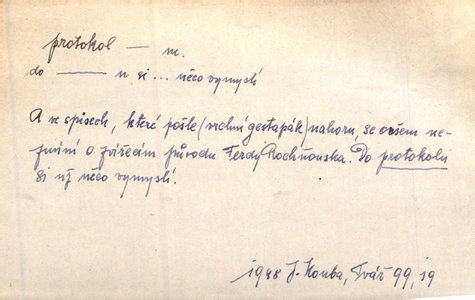 protokol — m.
do ——— u si ... něco vymyslí
A ve spisech, které pošle (vrchní gestapák) nahoru, se ovšem ne-
zmíní o zvířecím původu Ferdy Rochňouska. Do protokolu
si už něco vymyslí.
1948 J. Konba, Tvář 99, 19